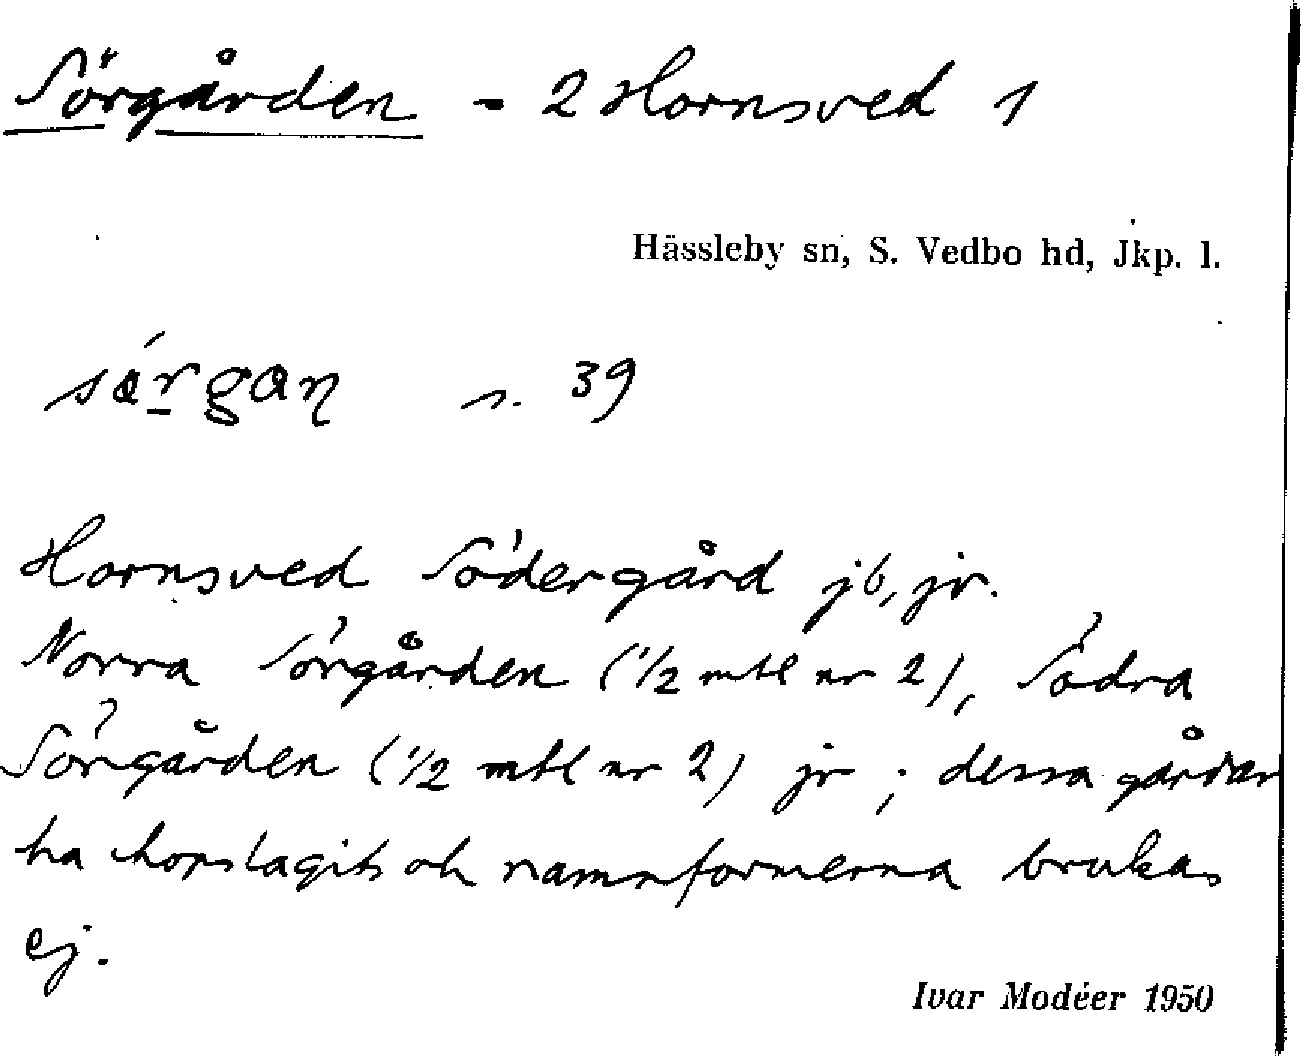 Sörgården - 2 Hornsved 1
Hässleby sn, S. Vedbo hd, Jkp. l.
s. 39
Hornsved Södergård jb, jr.
Norra Sörgården (1/2 mtl nr 2), Södra
Sörgården (1/2 mtl nr 2) jr ; dessa gårdar
ha hopslagits och namnformerna brukas
ej.
Ivar Modéer 1950